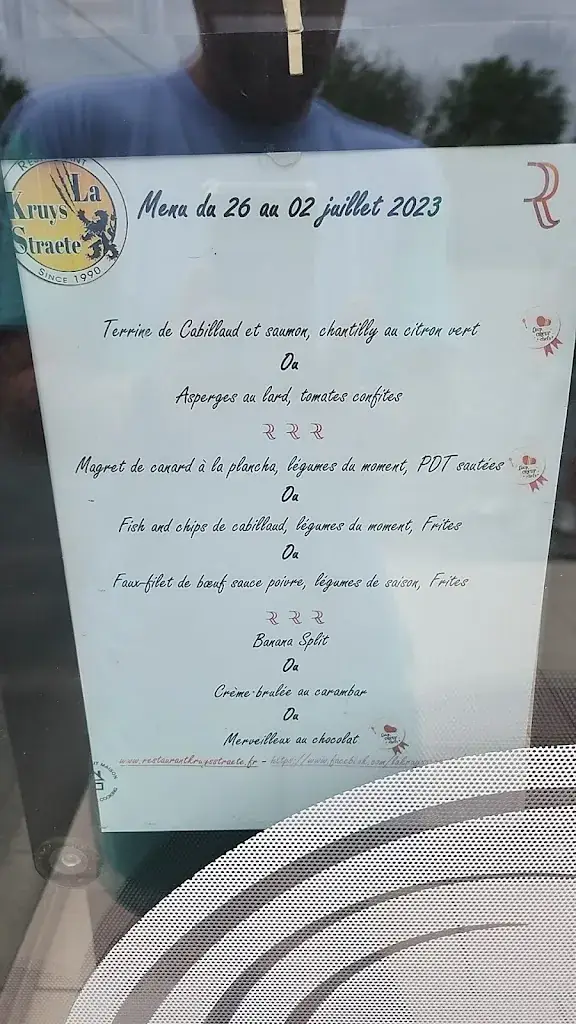 RESTAURANT
La
Kruys
Straete
SINCE 1990
Menu du 26 au 02 juillet 2023
Terrine de Cabillaud et saumon, chantilly au citron vert
Ou
Asperges au lard, tomates confites
Ou
Magret de canard à la plancha, légumes du moment, PDT sautées
Ou
Fish and chips de cabillaud, légumes du moment, Frites
Ou
Faux-filet de bœuf sauce poivre, légumes de saison, Frites
Banana Split
Ou
Crème-brulée au carambar
Ou
Merveilleux au chocolat
www.restaurantkruysstraete.fr - https://www.facebook.com/lakruys